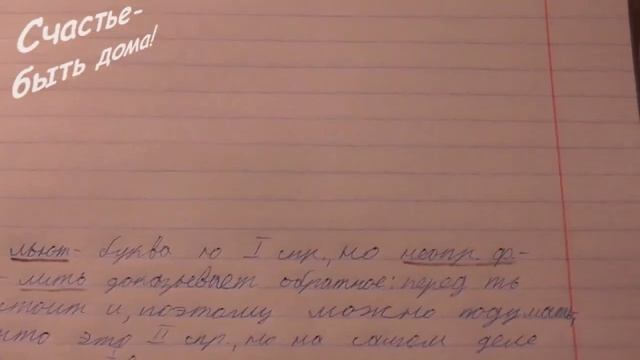 Счастье-
быть дома!
льют- буква ю I спр., но неопр. ф-
лить доказывает обратное: перед ть
стоит и, поэтому можно подумать,
что это II спр., но на самом деле